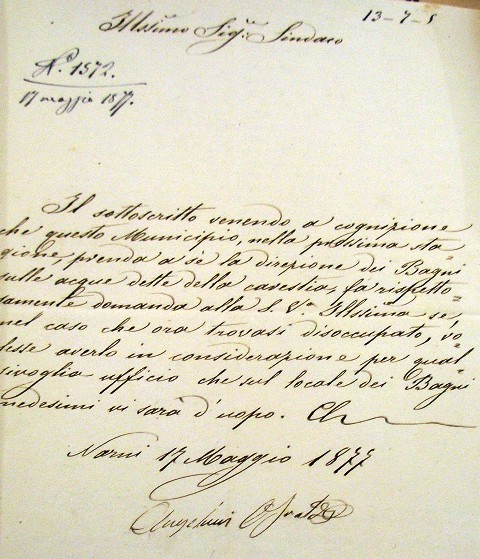 13-7-5
Illsimo Sigre Sindaco
N.º 1572.
17 maggio 1877.
Il sottoscritto venendo a cognizione
che questo Municipio, nella prossima sta=
gione, prenda a sè la direzione dei Bagni
sulle acque dette della carestia, fa rispetto=
samente domanda alla S. Vª Illsima se,
nel caso che ora trovasi disoccupato, vo=
lesse averlo in considerazione per qual=
sivoglia ufficio che sul locale dei Bagni
medesimi vi sarà d'uopo. Che
Narni 17 Maggio 1877
Angelini